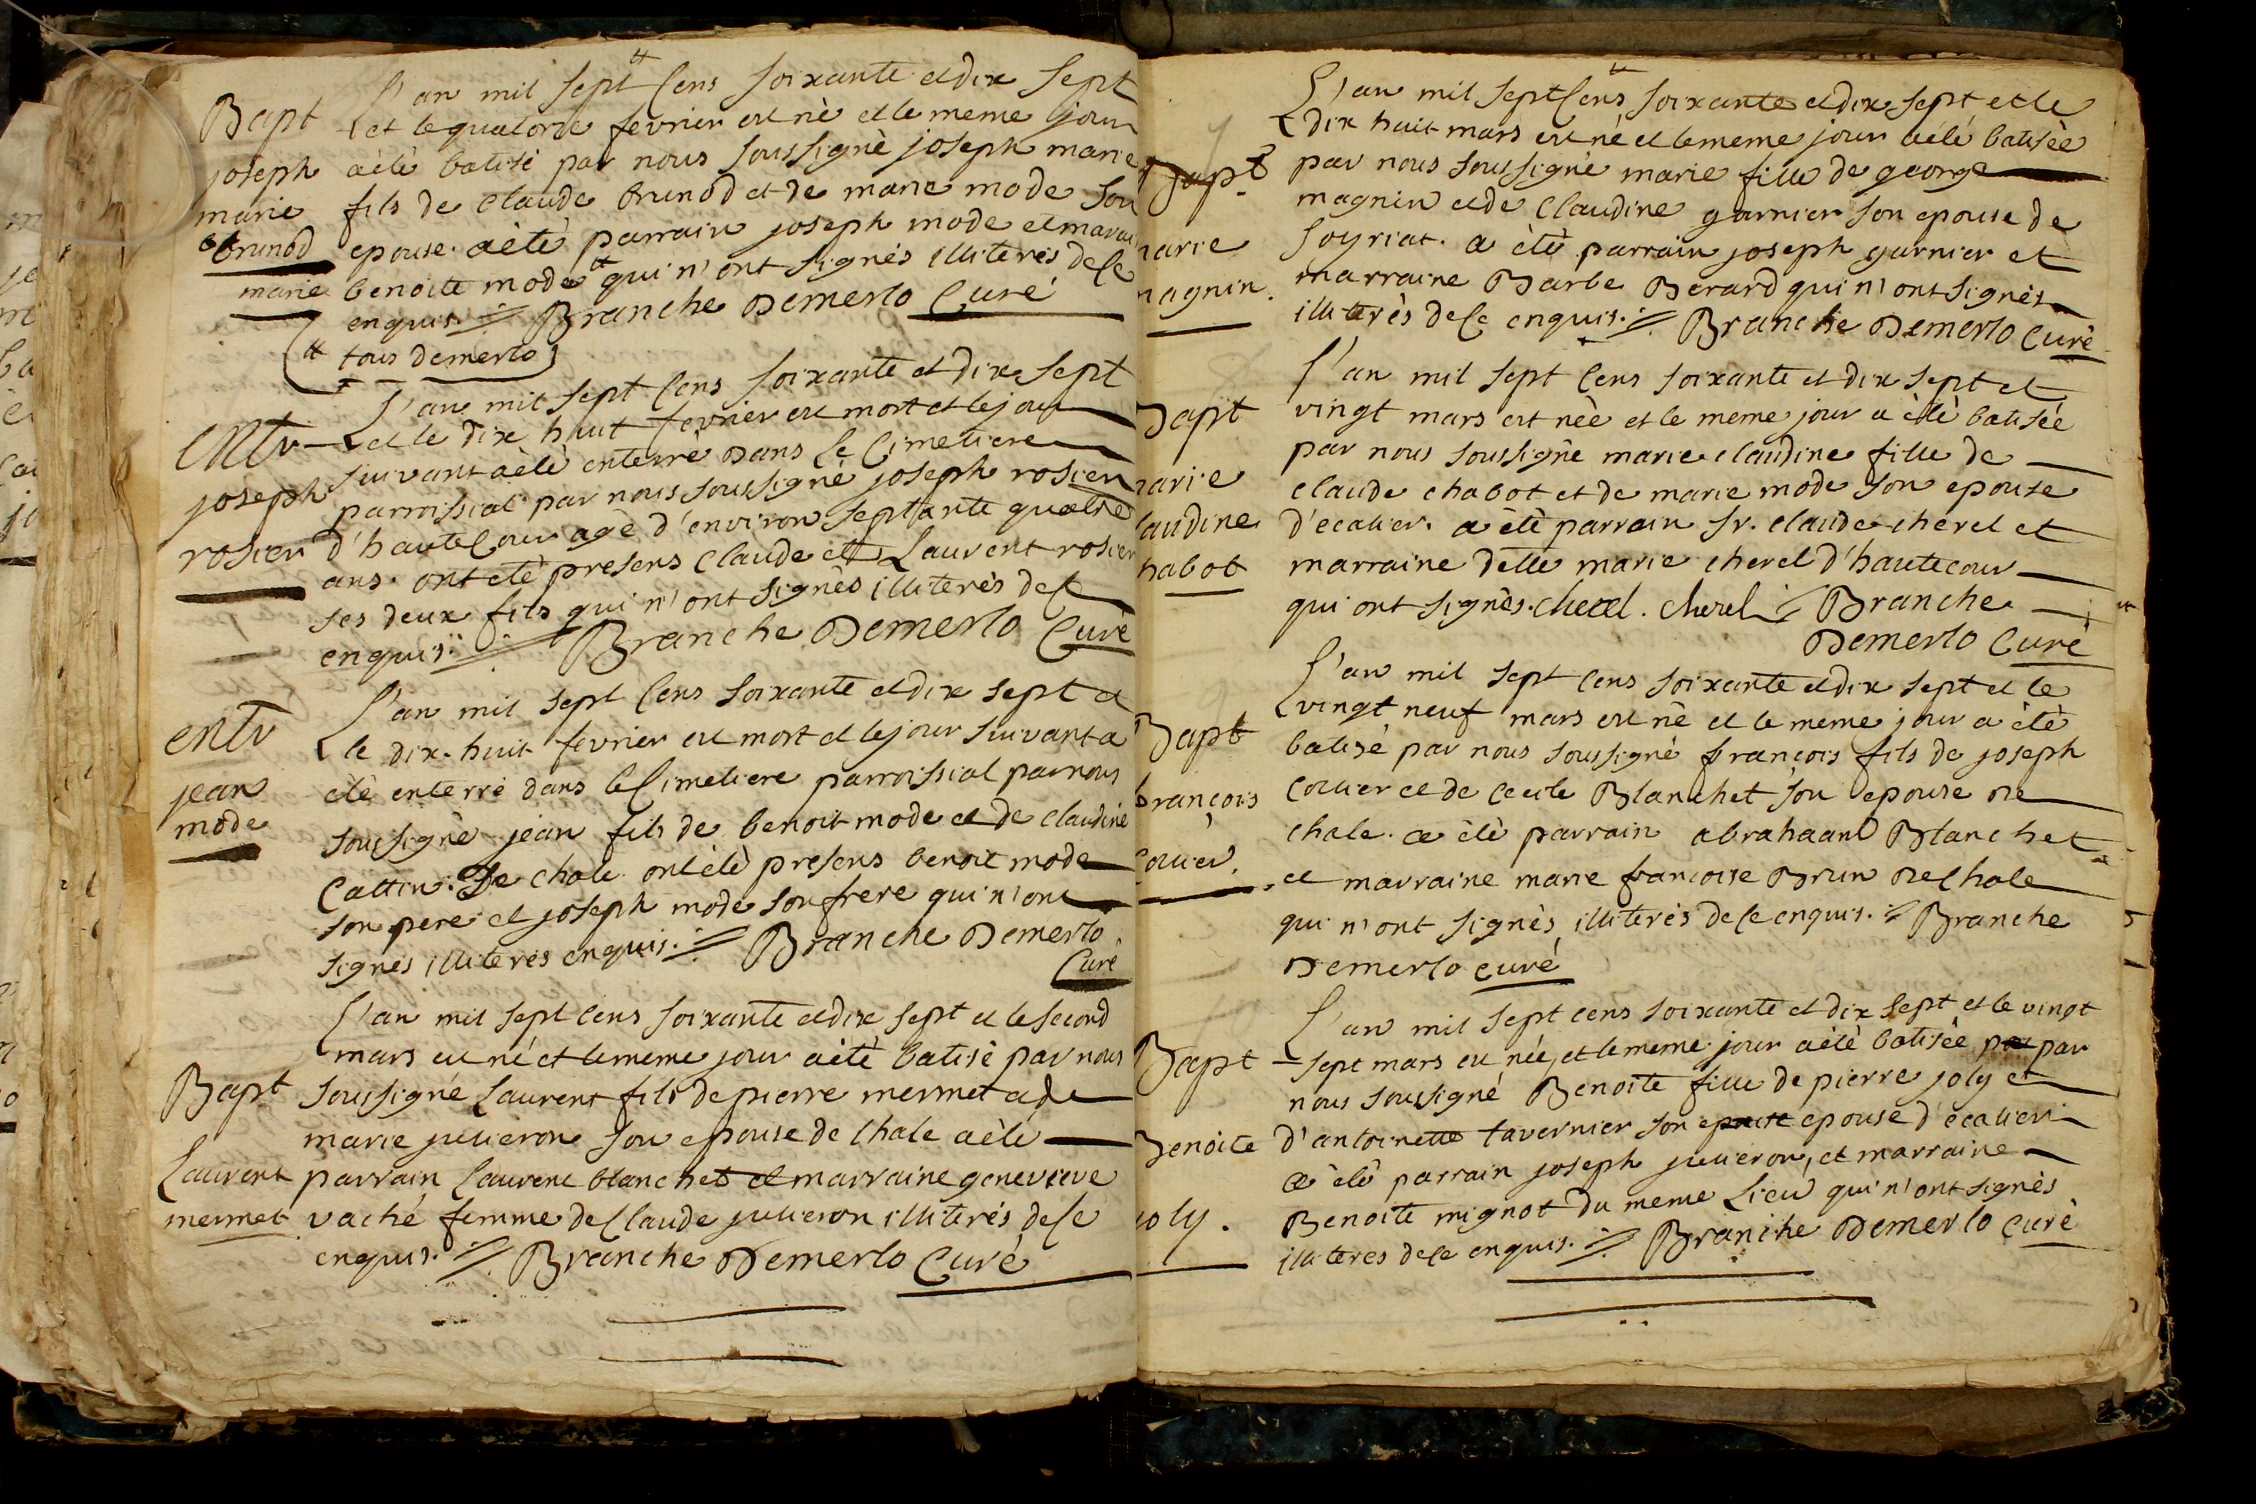 L'an mil sept cens soixante et dix sept
Bapt et le quatorze fevrier est né et le meme jour
joseph a èté batisé par nous soussigné joseph marie
marie fils de claude brunod et de marie mode son
brunod epouse. a èté parrain joseph mode et marai
marie benoite mode qui n'ont signés illiterés de ce
enquis. Branche Demerlo Curé
tous demerlo
L'an mil sept cens soixante et dix sept
entr et le dix huit fevrier est mort et le jour
suivant a èté enterré dans le Cimetiere
joseph parroissial par nous soussigné joseph rosier
rosier d'hautecour agé d'environ septante quatre
ans. ont eté presens claude et Laurent rosier
ses deux fils qui n'ont signés illiterés de ce
enquis. Branche Demerlo Curé
L'an mil sept cens soixante et dix sept et
entr le dix-huit fevrier est mort et le jour suivant a
jean eté enterré dans le Cimetiere parroissial par nous
mode soussigné jean fils de benoit mode et de claudine
Cattin. De chale ont èté presens benoit mode
son pere et joseph mode son frere qui n'ont
signés illiterés enquis. Branche Demerlo
Curé
L'an mil sept cens soixante et dix sept et le second
mars est né et le meme jour a èté batisé par nous
Bapt soussigné Laurent fils de pierre mermet et de
marie julieron son epouse de chale a èté
Laurent parrain Laurent blanchet et marraine genevieve
mermet vaché femme de Claude julieron illiterés de ce
enquis. Branche Demerlo Curé
L'an mil sept cens soixante et dix sept et le
dix huit mars est né et le meme jour a èté batisée
Bapt par nous soussigné marie fille de george
magnin et de Claudine garnier son epouse de
marie Soyriat. a èté parrain joseph garnier et
magnin. marraine Barbe Berard qui n'ont signés
illiterés de ce enquis. Branche Demerlo Curé
L'an mil sept cens soixante et dix sept et
Bapt vingt mars est née et le meme jour a èté batisée
par nous soussigné marie claudine fille de
marie claude chabot et de marie mode son epouse
claudine d'ecalier. a èté parrain Sr. claude cherel et
chabot marraine delle marie cherel d'hautecour
qui ont signés. cherel. cherel Branche
Demerlo Curé
L'an mil sept cens soixante et dix sept et le
vingt neuf mars est né et le meme jour a èté
Bapt batisé par nous soussigné françois fils de joseph
françois Collier et de Cecile Blanchet son epouse de
chale. a èté parrain abrahaam Blanchet
Collier. et marraine marie francoise Brun de Chale
qui n'ont signés illiterés de ce enquis. Branche
Demerlo curé
L'an mil sept cens soixante et dix sept et le vingt
Bapt sept mars est née, et le meme jour a èté batisée par par
nous soussigné Benoite fille de pierre joly et
Benoite d'antoinette tavernier son epouse epouse d'ecalier
a èté parrain joseph julieron, et marraine
joly. Benoite mignot du meme Lieu qui n'ont signés
illiterés de ce enquis. Branche Demerlo Curé